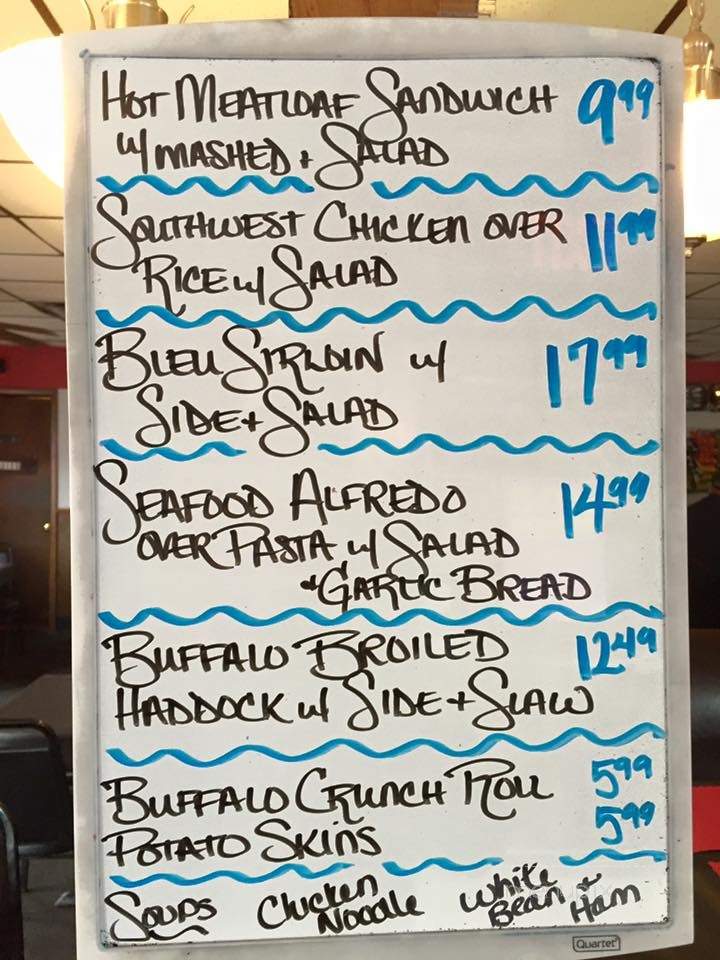 Hot Meatloaf Sandwich 9.99
w/ Mashed + Salad
Southwest Chicken over 11.99
Rice w/ Salad
Bleu Sirloin w/ 17.99
Side + Salad
Seafood Alfredo 14.99
over Pasta w/ Salad
+ Garlic Bread
Buffalo Broiled 12.49
Haddock w/ Side + Slaw
Buffalo Crunch Roll 5.99
Potato Skins 5.99
Soups Chicken Noodle White Bean + Ham
Quartet